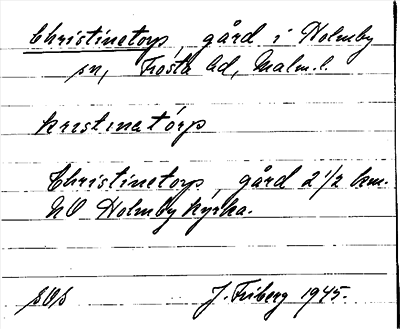 Christinetorp, gård i Holmby
sn, Frosta hd, Malm. l.
kristinatórp
Christinetorp, gård 2 1/2 km.
NO Holmby kyrka.
J. Friberg 1945.